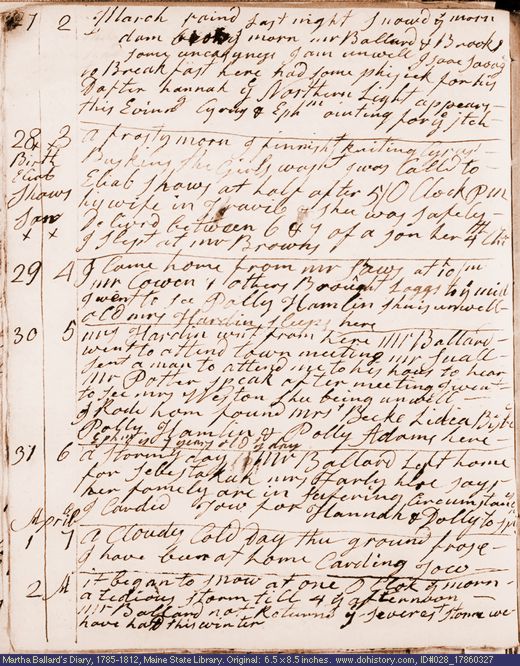 27 2 March raind Last night Snowd ys morn
dam ys morn mr Ballard & Brooks
some uneadyness I am unwell Isaac Savag
Breakfast here had some phisick for his
Dafter hannah ye Northern Light appears
this Evinng Cyrus & Ephm ointing for ye itch
28 3 a frosty morn I finnisht kniting Cyrus
Birth Buskins the Girls washt I was Calld to
Eliab Eliab Shaws at half after 5 / O Clock p m
Shaws his wife in Travil & she was safely
Son Delivrd between 6 & 7 of a son her 4th Chi
x x I slept at mr Browns
29 4 I Came home from mr at 10 / m
mr Cowen & others Brought Loggs to ye mill
I went to see Polly Hamlin shee is unwell
old mrs Hardin sleeps here
30 5 mrs Hardin went from here mr Ballard
went to attend town meeting mr Suall
sent a man to attend me to his hous to hear
Mr Potter speak after meeting I went
to see mrs Weston shee being unwell
I Rode home found mrs Beeke Lidea Bisbe
Polly Hamlin & Polly Adams here
Ephm is 7 years old to day
31 6 a storing day mr Ballard Left home
for Sebestakuk mrs Harly here says
her family are in suffering Circumstances
I Carded Tow for Hannah & Dolly to spi
April
1 7 a Cloudy Cold Day the ground frose
I have been at home Carding Tow
2 it began to snow at one O Clok ys morn
a tedious storm till 4 ys afternoon
mr Ballard not Returnd ye severest storm we
have had this winter
Martha Ballard's Diary, 1785-1812, Maine State Library. Original: 6.5 x 8.5 inches. www.dohistory.com, ID#028_17860327